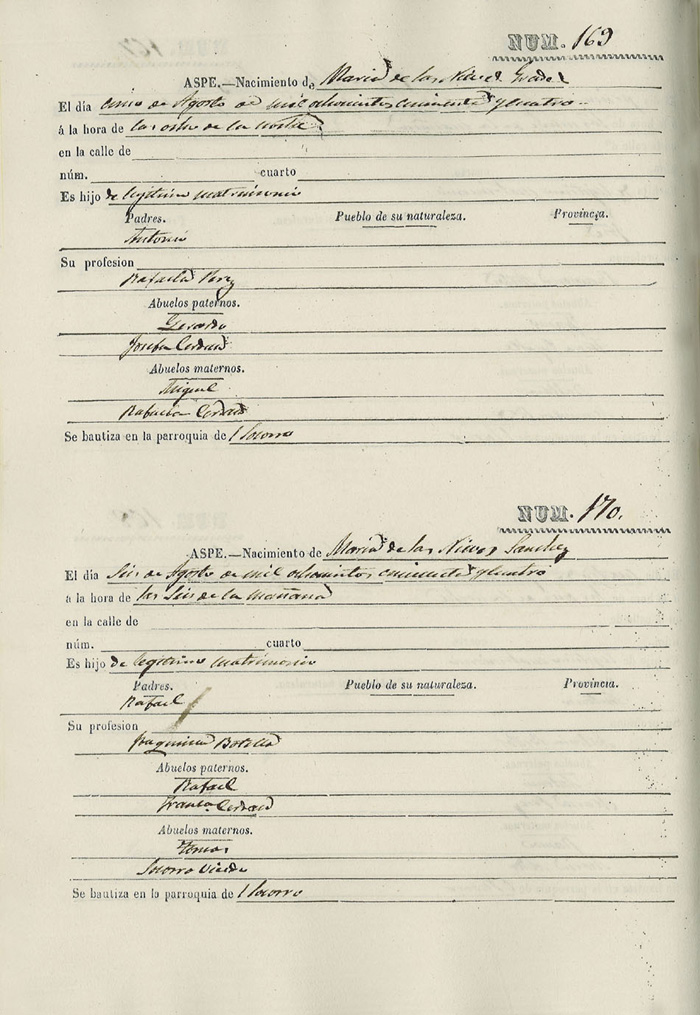 NUM. 169
ASPE.—Nacimiento de Maria de las Nieves
El día cinco de Agosto de mil ochocientos cincuenta y cuatro
á la hora de las ocho de la noche
en la calle de
núm. cuarto
Es hijo de legitimo matrimonio
Padres. Pueblo de su naturaleza. Provincia.
Antonio
Su profesion
Rafaela Perez
Abuelos paternos.
Gerardo
Josefa Cerdan
Abuelos maternos.
Miguel
Rafaela Cerdan
Se bautiza en la parroquia de l Socorro
NUM. 170.
ASPE.—Nacimiento de Maria de las Nieves Sanchez
El día Seis de Agosto de mil ochocientos cincuenta y cuatro
á la hora de las Seis de la mañana
en la calle de
núm. cuarto
Es hijo de legitimo matrimonio
Padres. Pueblo de su naturaleza. Provincia.
Rafael
Su profesion
Joaquina Botella
Abuelos paternos.
Rafael
Franca Cerdan
Abuelos maternos.
Tomas
Socorro
Se bautiza en la parroquia de l Socorro